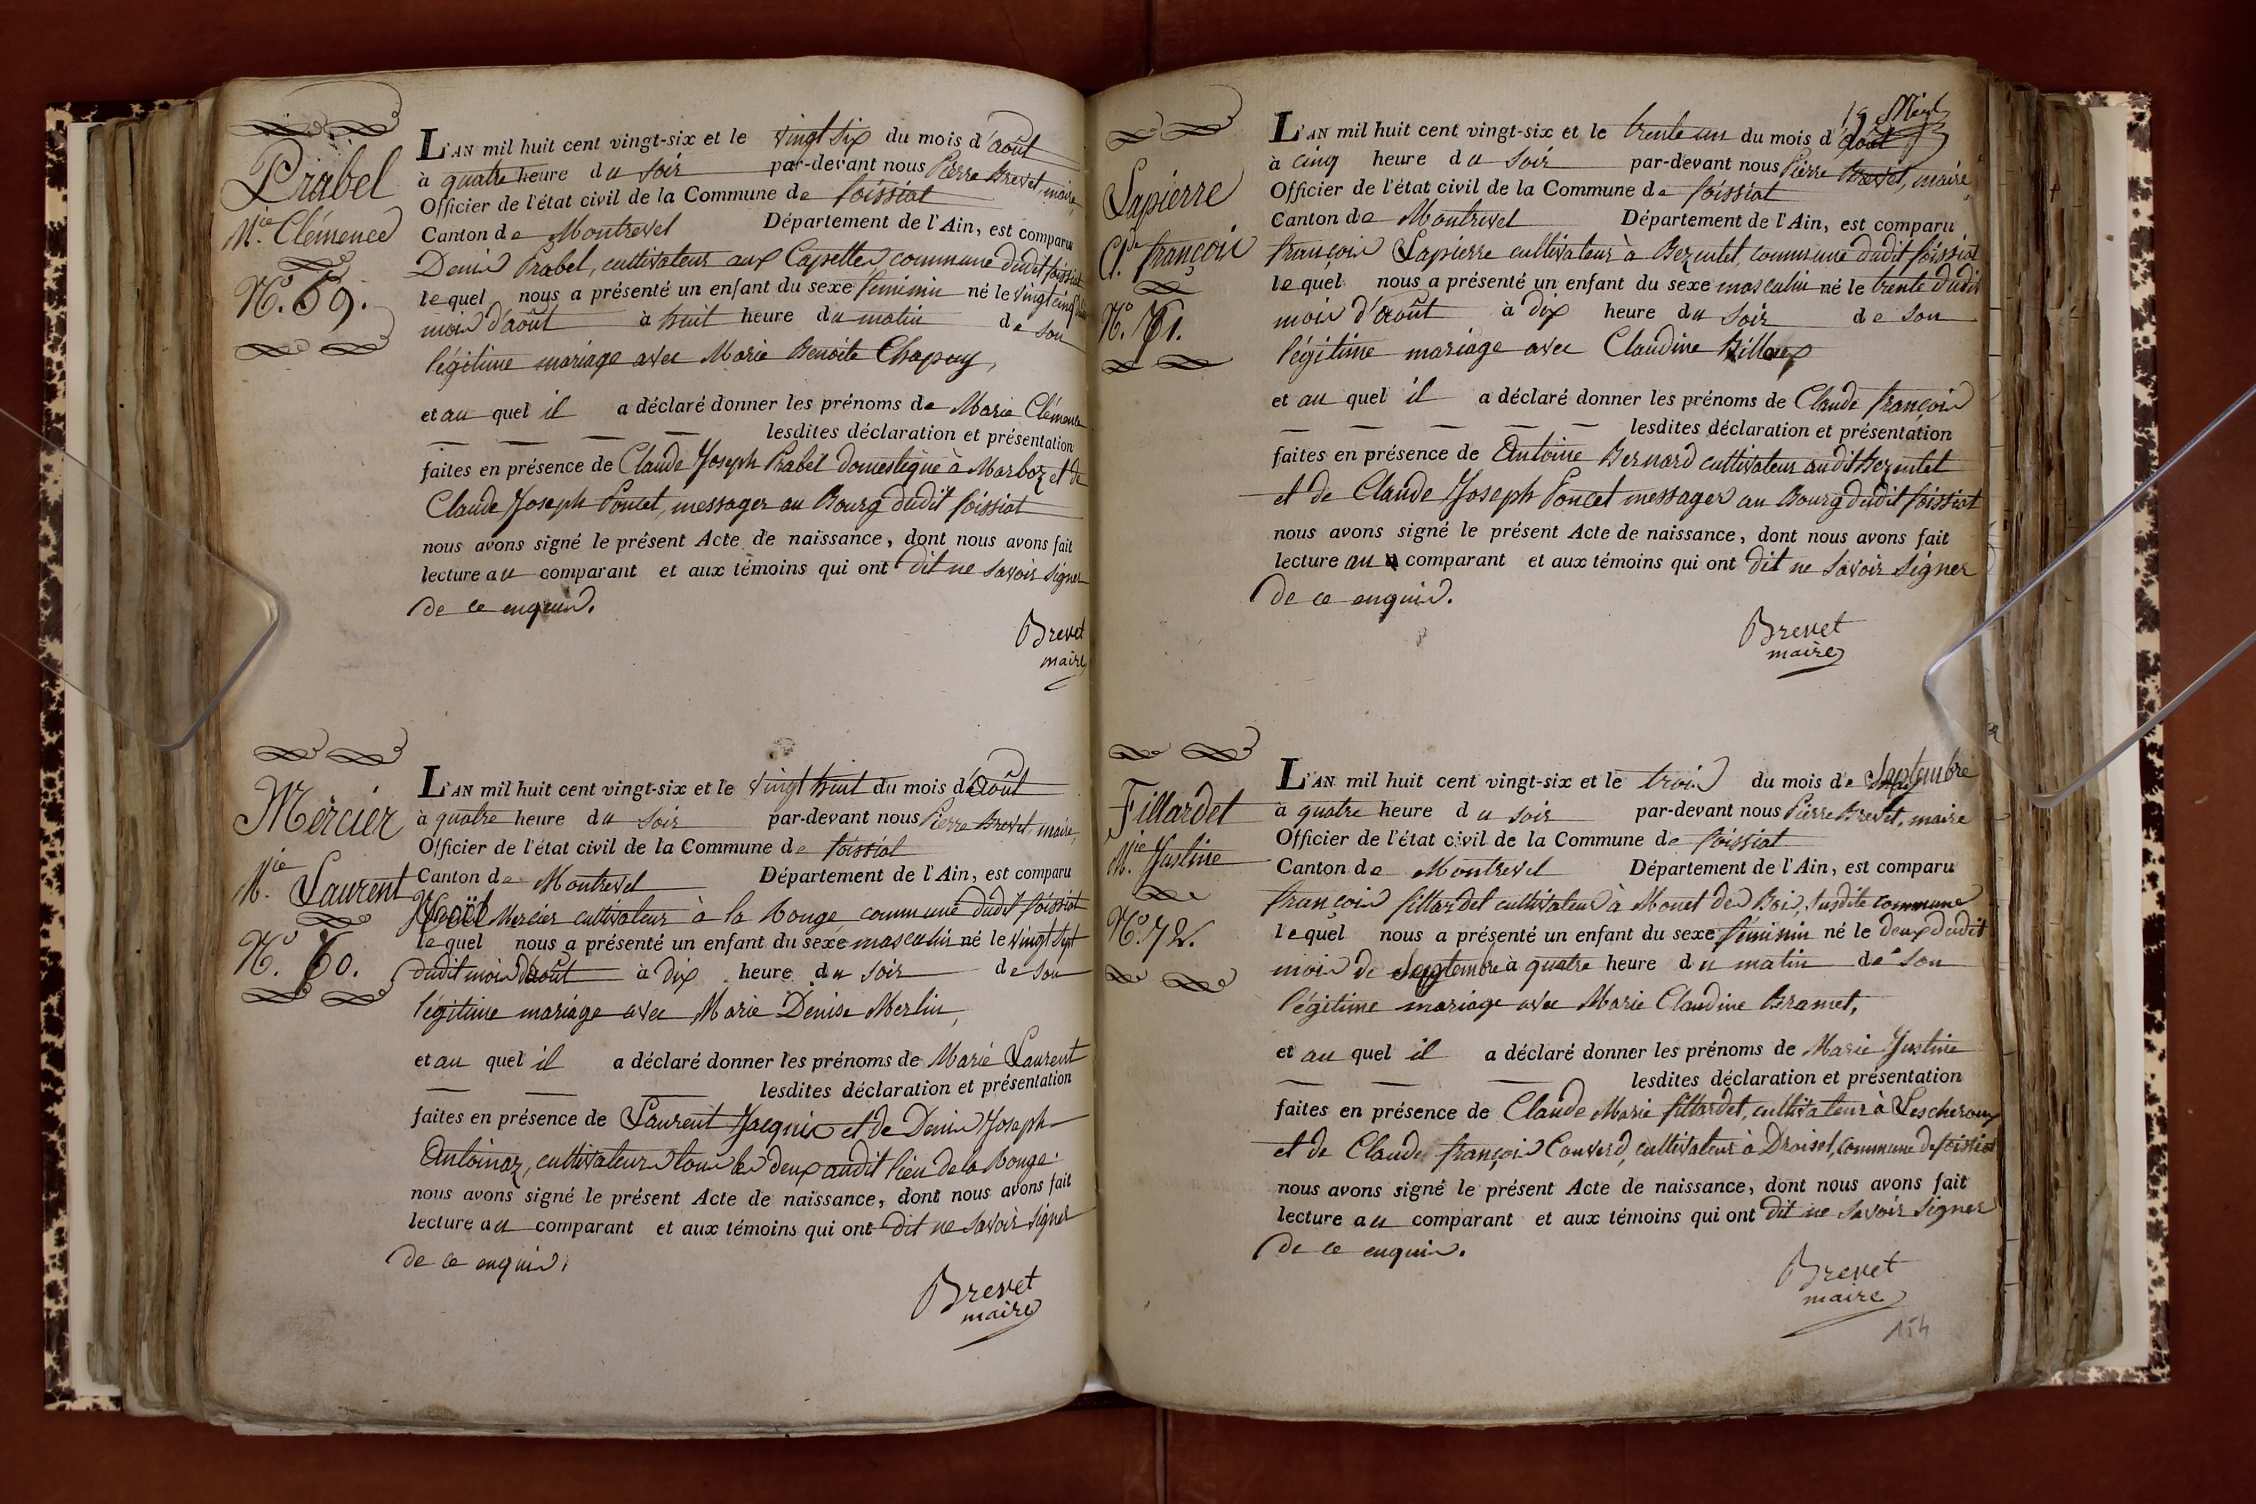 Prabel
M.ie Clémence
N.o 69.
L'AN mil huit cent vingt-six et le vingt six du mois d'août
à quatre heure du soir par-devant nous Pierre Brevet, maire,
Officier de l'état civil de la Commune de foissiat
Canton de Montrevel Département de l'Ain, est comparu
Denis Prabel, cultivateur aux Capettes commune dudit foissiat
lequel nous a présenté un enfant du sexe féminin né le vingt cinq
mois d'août à huit heure du matin de son
légitime mariage avec Marie Benoite Chapuy,
et au quel il a déclaré donner les prénoms de Marie Clémence
lesdites déclaration et présentation
faites en présence de Claude Joseph Prabel domestique à Marboz et de
Claude Joseph Poncet, messager au Bourg dudit foissiat
nous avons signé le présent Acte de naissance, dont nous avons fait
lecture au comparant et aux témoins qui ont dit ne savoir signer
de ce enquis.
Brevet
maire
Mercier
M.ie Laurent
L'AN mil huit cent vingt-six et le vingt huit du mois d'août
à quatre heure du soir par-devant nous Pierre Brevet, maire,
Officier de l'état civil de la Commune de foissiat
Canton de Montrevel Département de l'Ain, est comparu
Noël Mercier cultivateur à la Rouge commune dudit foissiat
lequel nous a présenté un enfant du sexe masculin né le vingt sept
dudit mois d'août à dix heure du soir de son
légitime mariage avec Marie Denise Merlin,
et au quel il a déclaré donner les prénoms de Marie Laurent
lesdites déclaration et présentation
faites en présence de Laurent Jacquis et de Denis Joseph
Antoinaz, cultivateurs tous les deux audit lieu de la Rouge.
nous avons signé le présent Acte de naissance, dont nous avons fait
lecture au comparant et aux témoins qui ont dit ne savoir signer
de ce enquis.
Brevet
maire
Lapierre
Cl.de françois
N.o 71.
L'AN mil huit cent vingt-six et le trente un du mois d'août
à cinq heure du soir par-devant nous Pierre Brevet, maire,
Officier de l'état civil de la Commune de foissiat
Canton de Montrevel Département de l'Ain, est comparu
françois Lapierre cultivateur à Bezentet, commune dudit foissiat
lequel nous a présenté un enfant du sexe masculin né le trente dudit
mois d'août à dix heure du soir de son
légitime mariage avec Claudine Billoux
et au quel il a déclaré donner les prénoms de Claude françois
lesdites déclaration et présentation
faites en présence de Antoine Bernard cultivateur audit Bezentet
et de Claude Joseph Poncet messager au Bourg dudit foissiat
nous avons signé le présent Acte de naissance, dont nous avons fait
lecture au comparant et aux témoins qui ont dit ne savoir signer
de ce enquis.
Brevet
maire
Fillardet
M.ie Justine
N.o 72.
L'AN mil huit cent vingt-six et le trois du mois de Septembre
à quatre heure du soir par-devant nous Pierre Brevet, maire
Officier de l'état civil de la Commune de foissiat
Canton de Montrevel Département de l'Ain, est comparu
françois fillardet cultivateur à Monet des Bois, susdite commune
lequel nous a présenté un enfant du sexe féminin né le deux dudit
mois de Septembre à quatre heure du matin de son
légitime mariage avec Marie Claudine Bramet,
et au quel il a déclaré donner les prénoms de Marie Justine
lesdites déclaration et présentation
faites en présence de Claude Marie fillardet, cultivateur à Lescheroux
et de Claude françois Convert, cultivateur à Droiset, commune de foissiat
nous avons signé le présent Acte de naissance, dont nous avons fait
lecture au comparant et aux témoins qui ont dit ne savoir signer
de ce enquis.
Brevet
maire
154